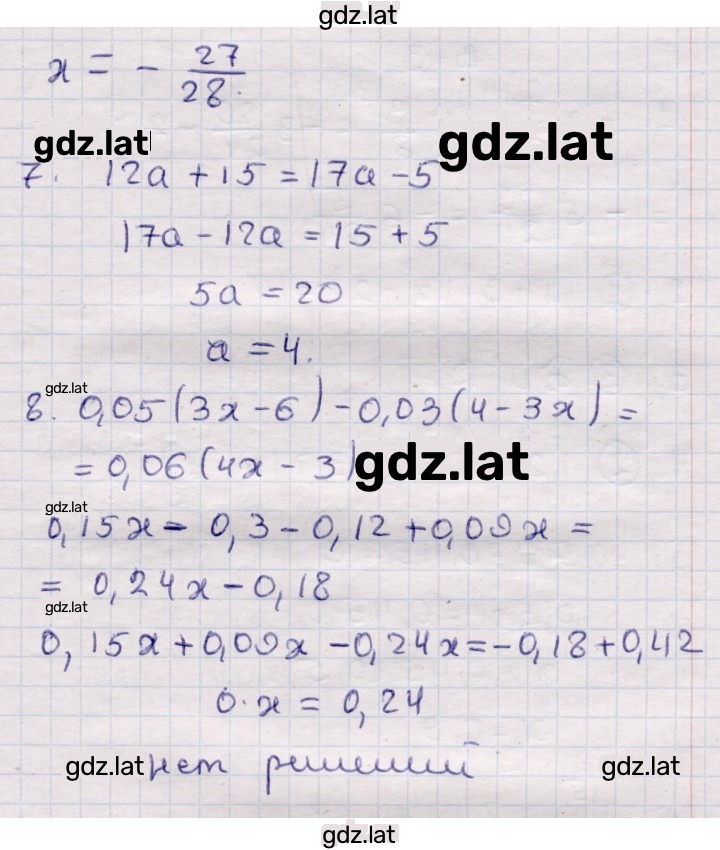 gdz.lat
x = - 27/28.
gdz.lat gdz.lat
7. 12a + 15 = 17a - 5
17a - 12a = 15 + 5
5a = 20
a = 4.
gdz.lat
8. 0,05(3x - 6) - 0,03(4 - 3x) =
= 0,06(4x - 3) gdz.lat
gdz.lat
0,15x - 0,3 - 0,12 + 0,09x =
= 0,24x - 0,18
gdz.lat
0,15x + 0,09x - 0,24x = -0,18 + 0,42
0·x = 0,24
gdz.lat нет решений gdz.lat
gdz.lat